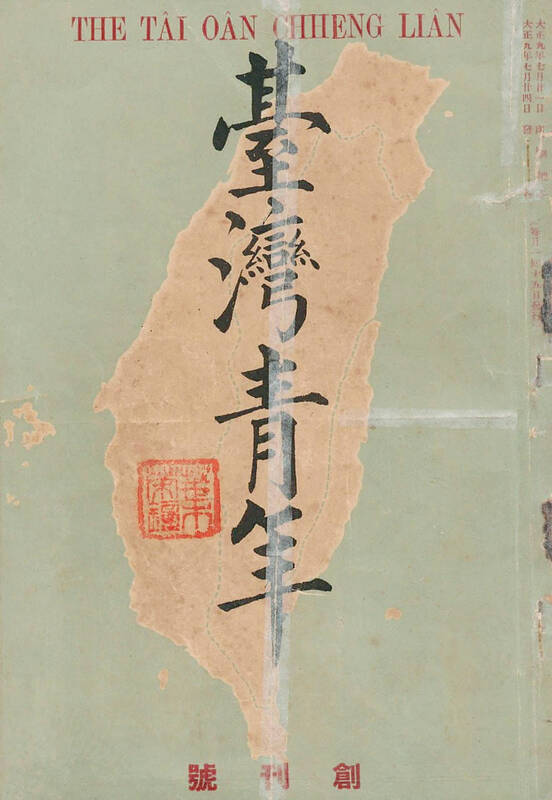 THE TÂI OÂN CHHENG LIÂN
臺灣青年
大正九年七月廿一日
大正九年七月廿四日 發
創刊號